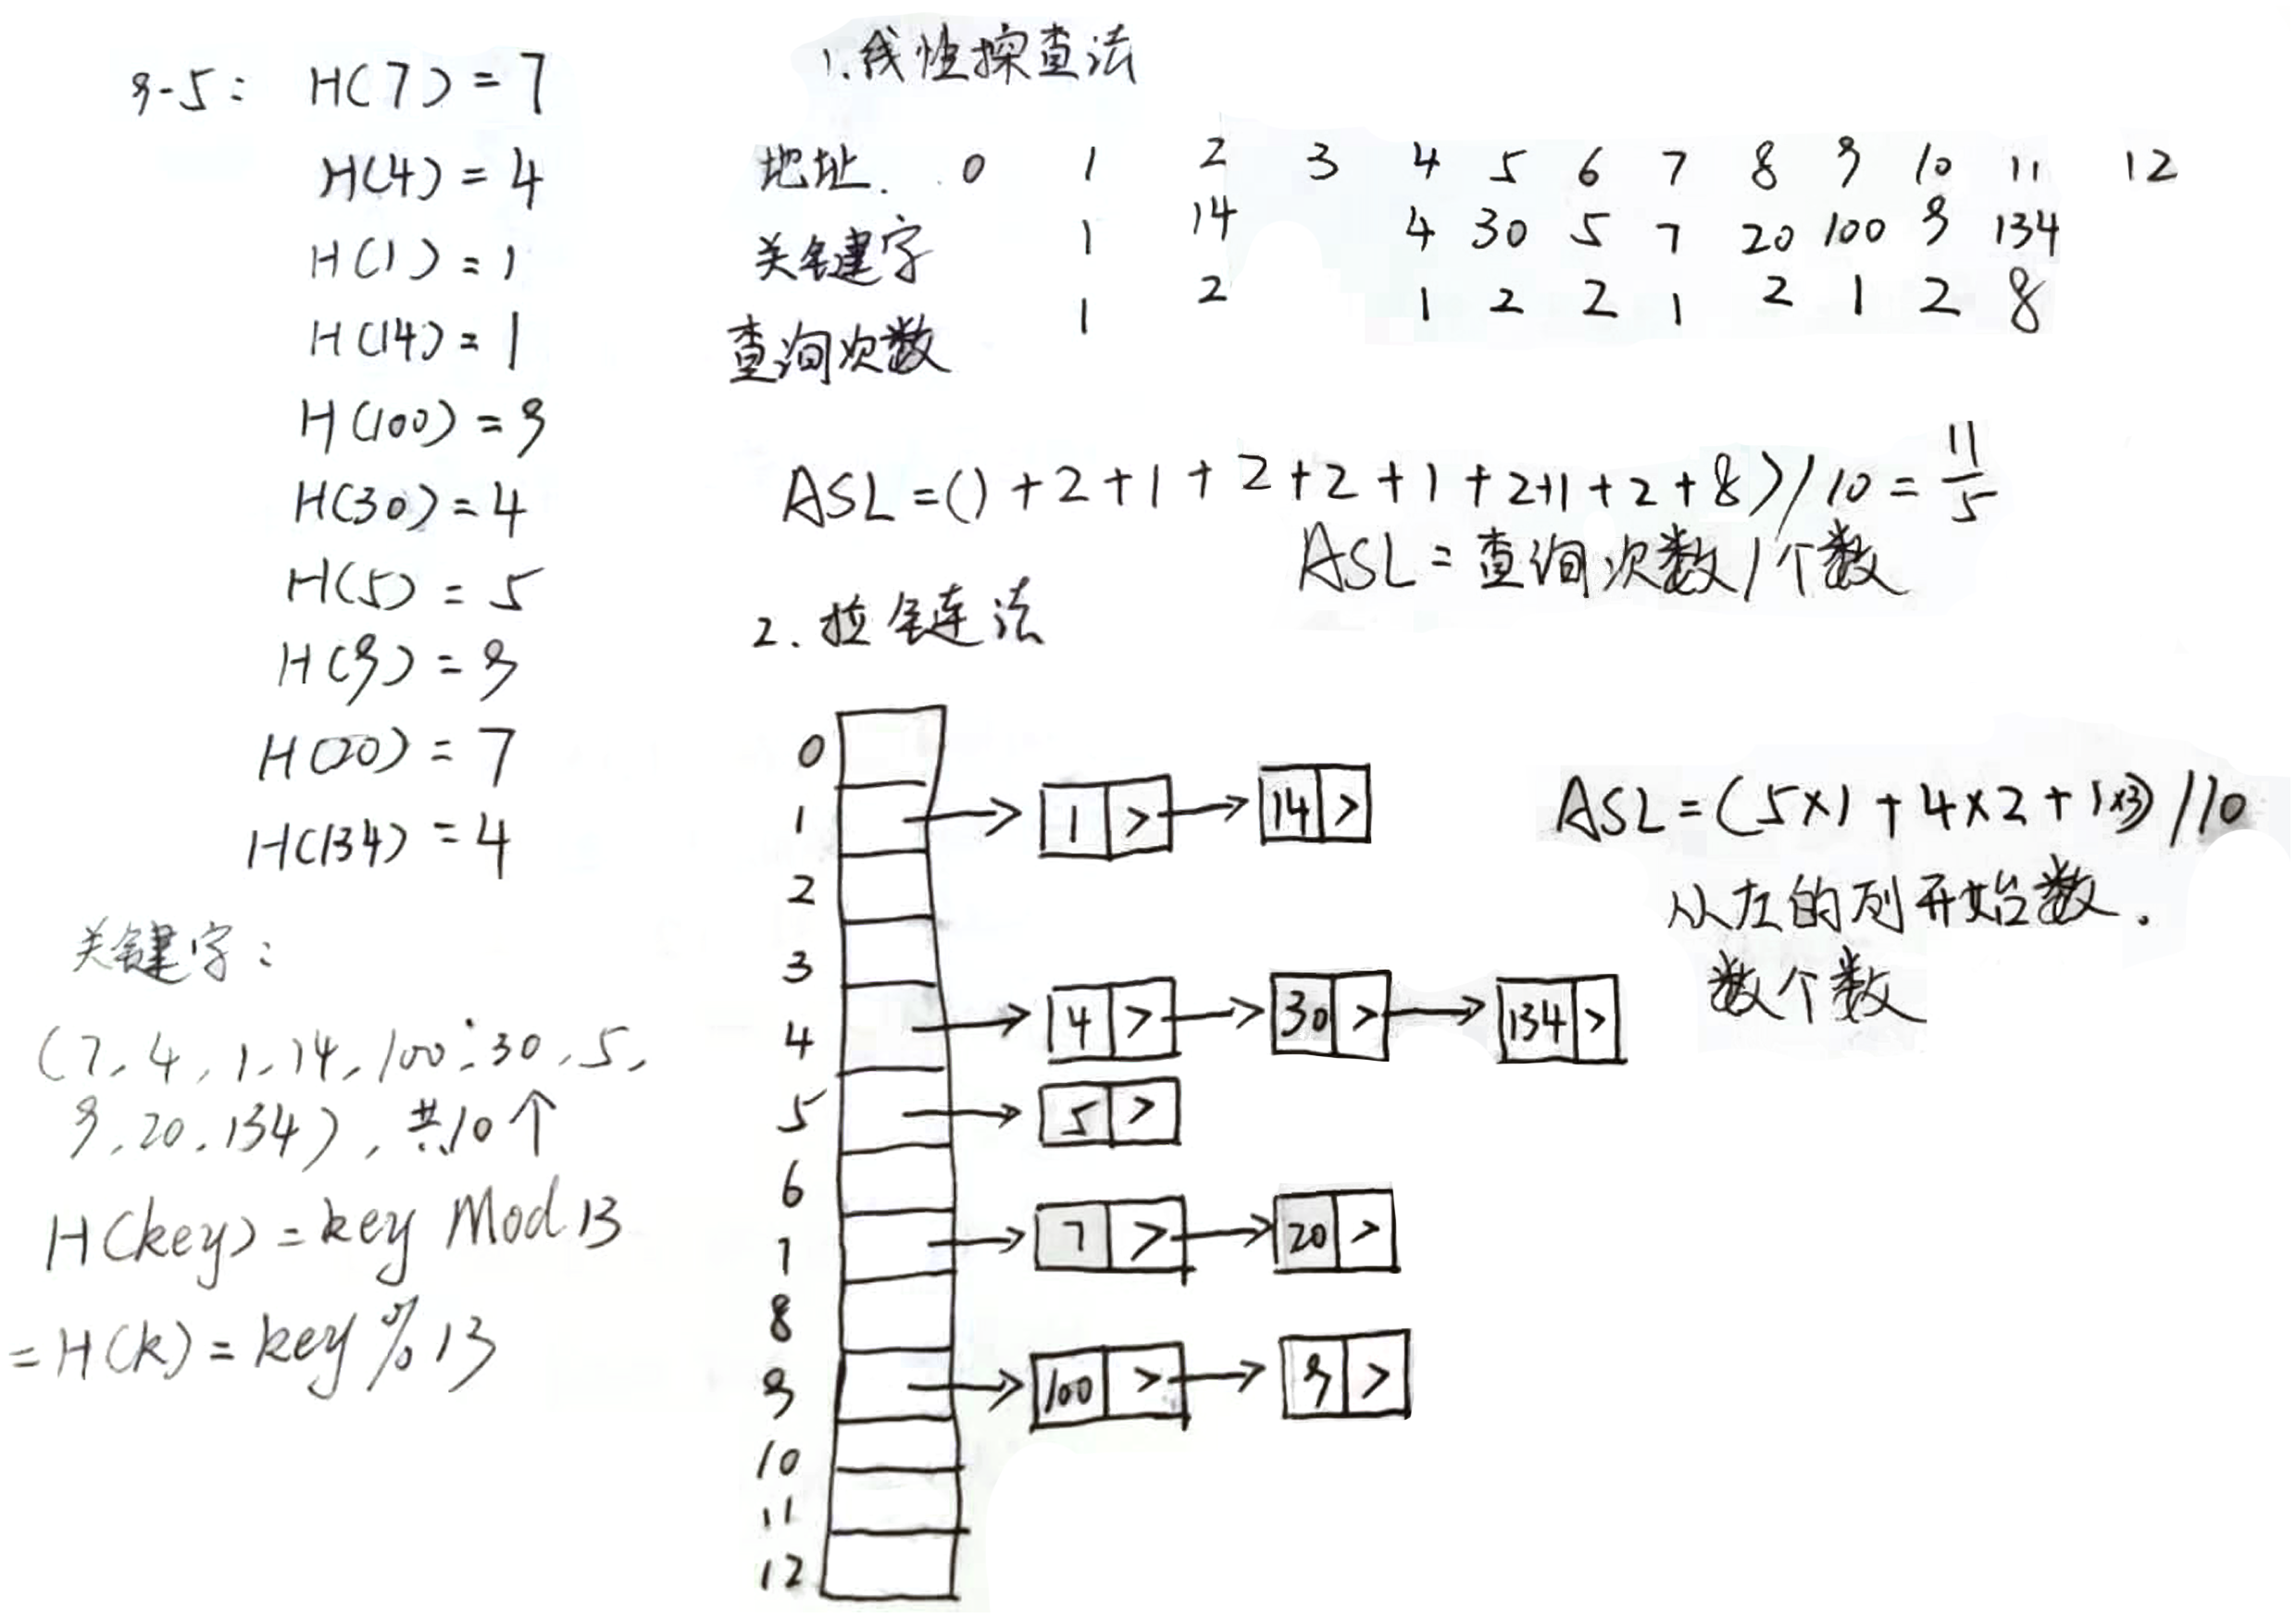 9-5: H(7) = 7
H(4) = 4
H(1) = 1
H(14) = 1
H(100) = 9
H(30) = 4
H(5) = 5
H(9) = 9
H(20) = 7
H(134) = 4
关键字:
(7,4,1,14,100,30,5,
9,20,134),共10个
H(key) = key Mod 13
= H(k) = key % 13
1.线性探查法
地址. 0 1 2 3 4 5 6 7 8 9 10 11 12
关键字 1 14 4 30 5 7 20 100 9 134
查询次数 1 2 1 2 2 1 2 1 2 8
ASL = (1+2+1+2+2+1+2+1+2+8)/10 = 11/5
ASL = 查询次数/个数
2.拉链法
0
1 1 > 14 >
2
3
4 4 > 30 > 134 >
5 5 >
6
7 7 > 20 >
8
9 100 > 9 >
10
11
12
ASL = (5×1+4×2+1×3)/10
从左的列开始数.
数个数